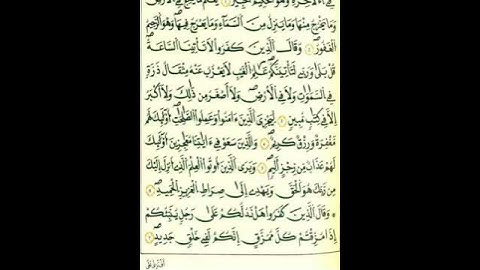 فِي الْآخِرَةِ وَهُوَ الْحَكِيمُ الْخَبِيرُ ۝١ يَعْلَمُ مَا يَلِجُ فِي الْأَرْضِ
وَمَا يَخْرُجُ مِنْهَا وَمَا يَنزِلُ مِنَ السَّمَاءِ وَمَا يَعْرُجُ فِيهَا وَهُوَ الرَّحِيمُ
الْغَفُورُ ۝٢ وَقَالَ الَّذِينَ كَفَرُوا لَا تَأْتِينَا السَّاعَةُ
قُلْ بَلَىٰ وَرَبِّي لَتَأْتِيَنَّكُمْ عَالِمُ الْغَيْبِ لَا يَعْزُبُ عَنْهُ مِثْقَالُ ذَرَّةٍ
فِي السَّمَاوَاتِ وَلَا فِي الْأَرْضِ وَلَا أَصْغَرُ مِن ذَٰلِكَ وَلَا أَكْبَرُ
إِلَّا فِي كِتَابٍ مُّبِينٍ ۝٣ لِّيَجْزِيَ الَّذِينَ آمَنُوا وَعَمِلُوا الصَّالِحَاتِ أُولَٰئِكَ لَهُم
مَّغْفِرَةٌ وَرِزْقٌ كَرِيمٌ ۝٤ وَالَّذِينَ سَعَوْ فِي آيَاتِنَا مُعَاجِزِينَ أُولَٰئِكَ
لَهُمْ عَذَابٌ مِّن رِّجْزٍ أَلِيمٍ ۝٥ وَيَرَى الَّذِينَ أُوتُوا الْعِلْمَ الَّذِي أُنزِلَ إِلَيْكَ
مِن رَّبِّكَ هُوَ الْحَقَّ وَيَهْدِي إِلَىٰ صِرَاطِ الْعَزِيزِ الْحَمِيدِ ۝٦
وَقَالَ الَّذِينَ كَفَرُوا هَلْ نَدُلُّكُمْ عَلَىٰ رَجُلٍ يُنَبِّئُكُمْ
إِذَا مُزِّقْتُمْ كُلَّ مُمَزَّقٍ إِنَّكُمْ لَفِي خَلْقٍ جَدِيدٍ ۝٧
أَفْتَرَىٰ عَلَى